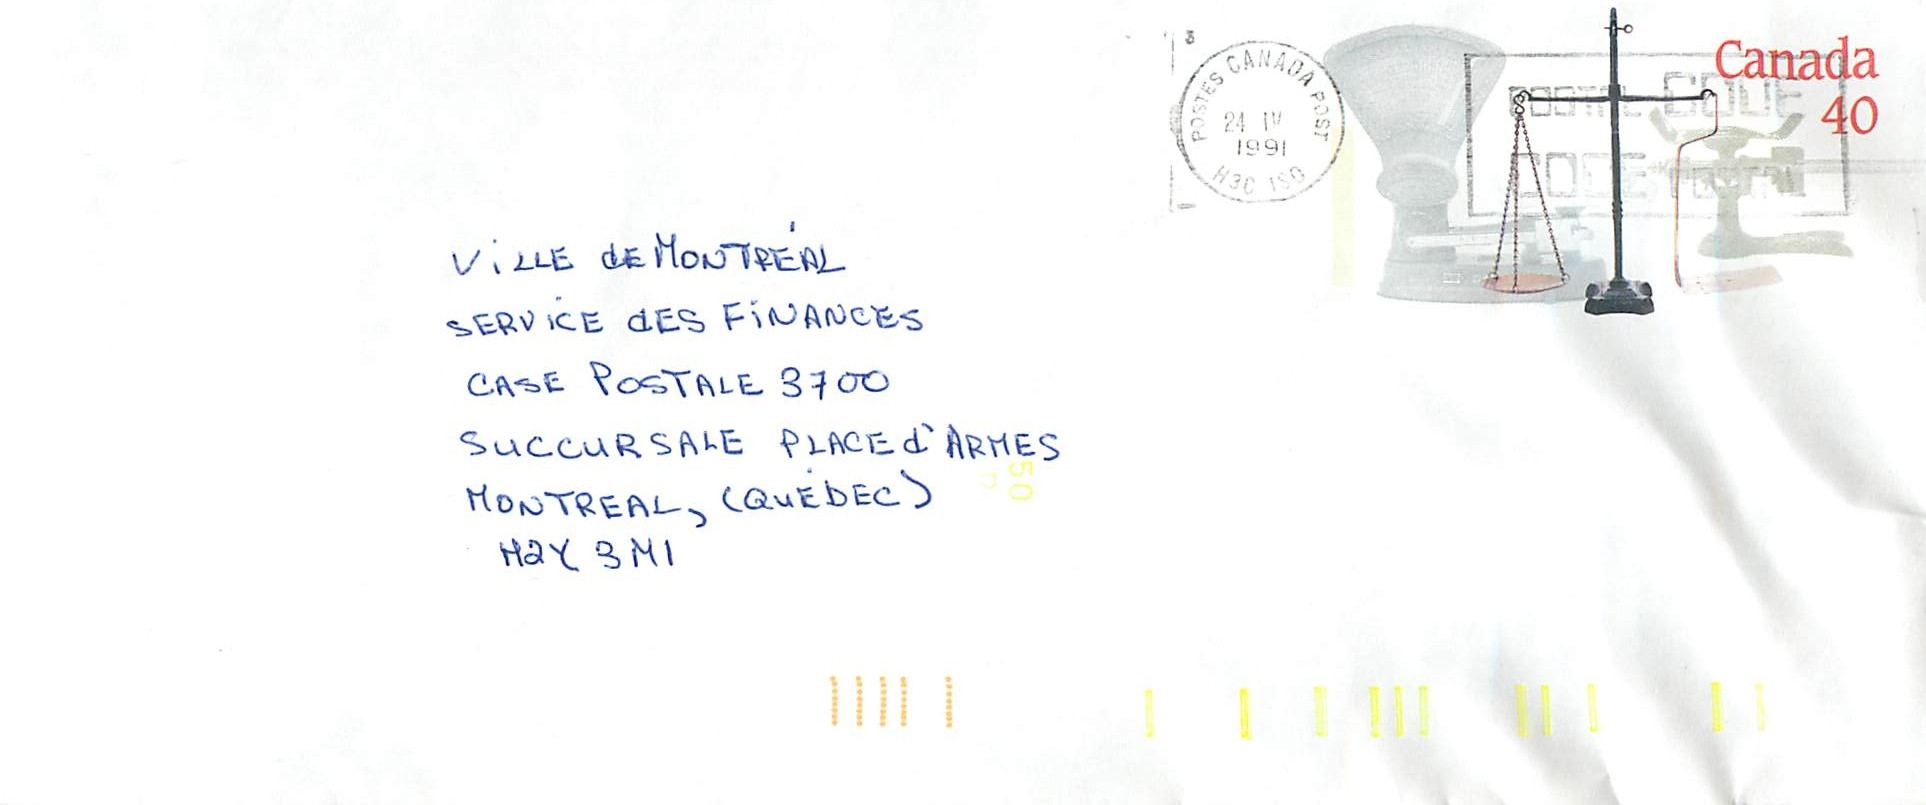 POSTES CANADA POST
24 IV
1991
H3C 1S0
POSTAL CODE
CODE POSTAL
Canada
40
ViLLE dE MONTRÉAL
SERVICE dES FiNANCES
CASE POSTALE 3700
SUCCURSALE PLACE d'ARMES
MONTREAL, (QUÉbEC)
H2Y 3M1
50